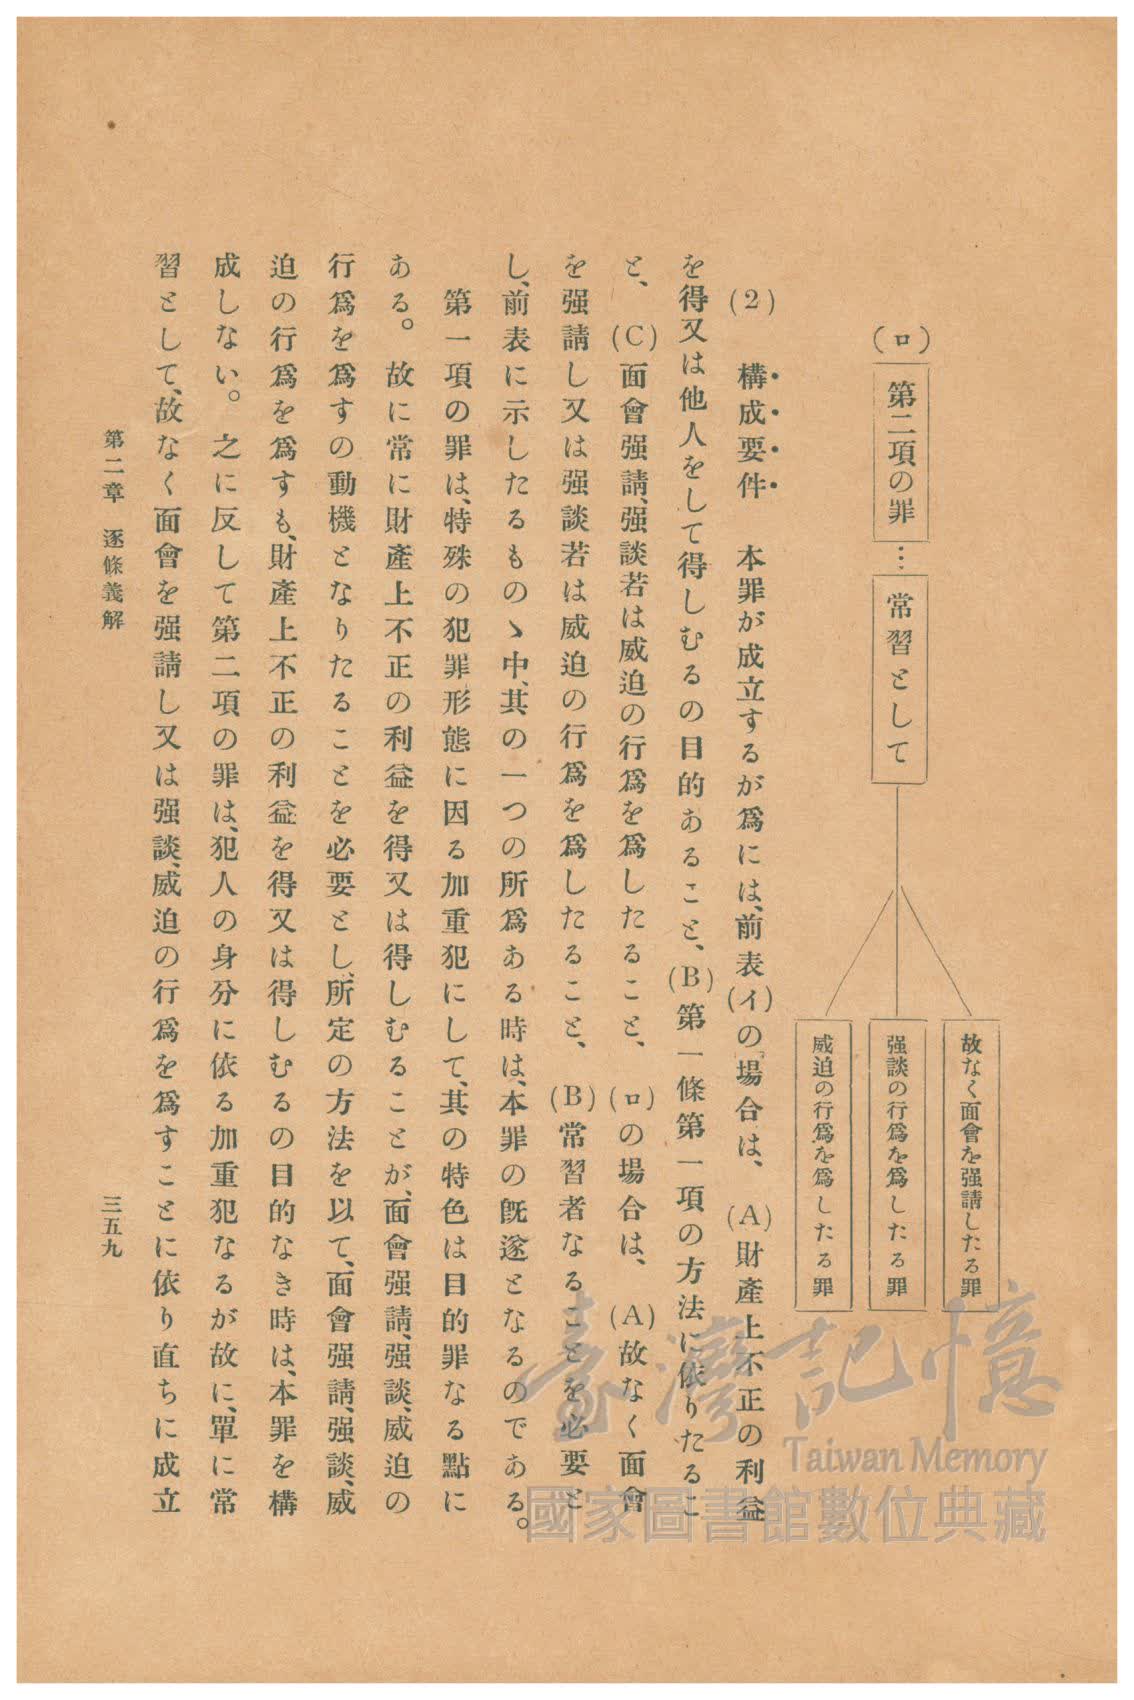 (ロ)
第二項の罪
…
常習として
故なく面會を强請したる罪
强談の行爲を爲したる罪
威迫の行爲を爲したる罪
(2) 構成要件 本罪が成立するが爲には、前表(イ)の場合は、(A)財產上不正の利益
を得又は他人をして得しむるの目的あること、(B)第一條第一項の方法に依りたるこ
と、(C)面會强請、强談若は威迫の行爲を爲したること、(ロ)の場合は、(A)故なく面會
を强請し又は强談若は威迫の行爲を爲したること、(B)常習者なることを必要と
し、前表に示したるものゝ中、其の一つの所爲ある時は、本罪の旣遂となるのである。
第一項の罪は、特殊の犯罪形態に因る加重犯にして、其の特色は目的罪なる點に
ある。故に常に財產上不正の利益を得又は得しむることが、面會强請、强談、威迫の
行爲を爲すの動機となりたることを必要とし、所定の方法を以て、面會强請、强談、威
迫の行爲を爲すも、財產上不正の利益を得又は得しむるの目的なき時は、本罪を構
成しない。之に反して第二項の罪は、犯人の身分に依る加重犯なるが故に、單に常
習として、故なく面會を强請し又は强談、威迫の行爲を爲すことに依り直ちに成立
第二章 逐條義解
三五九
臺灣記憶
Taiwan Memory
國家圖書館數位典藏